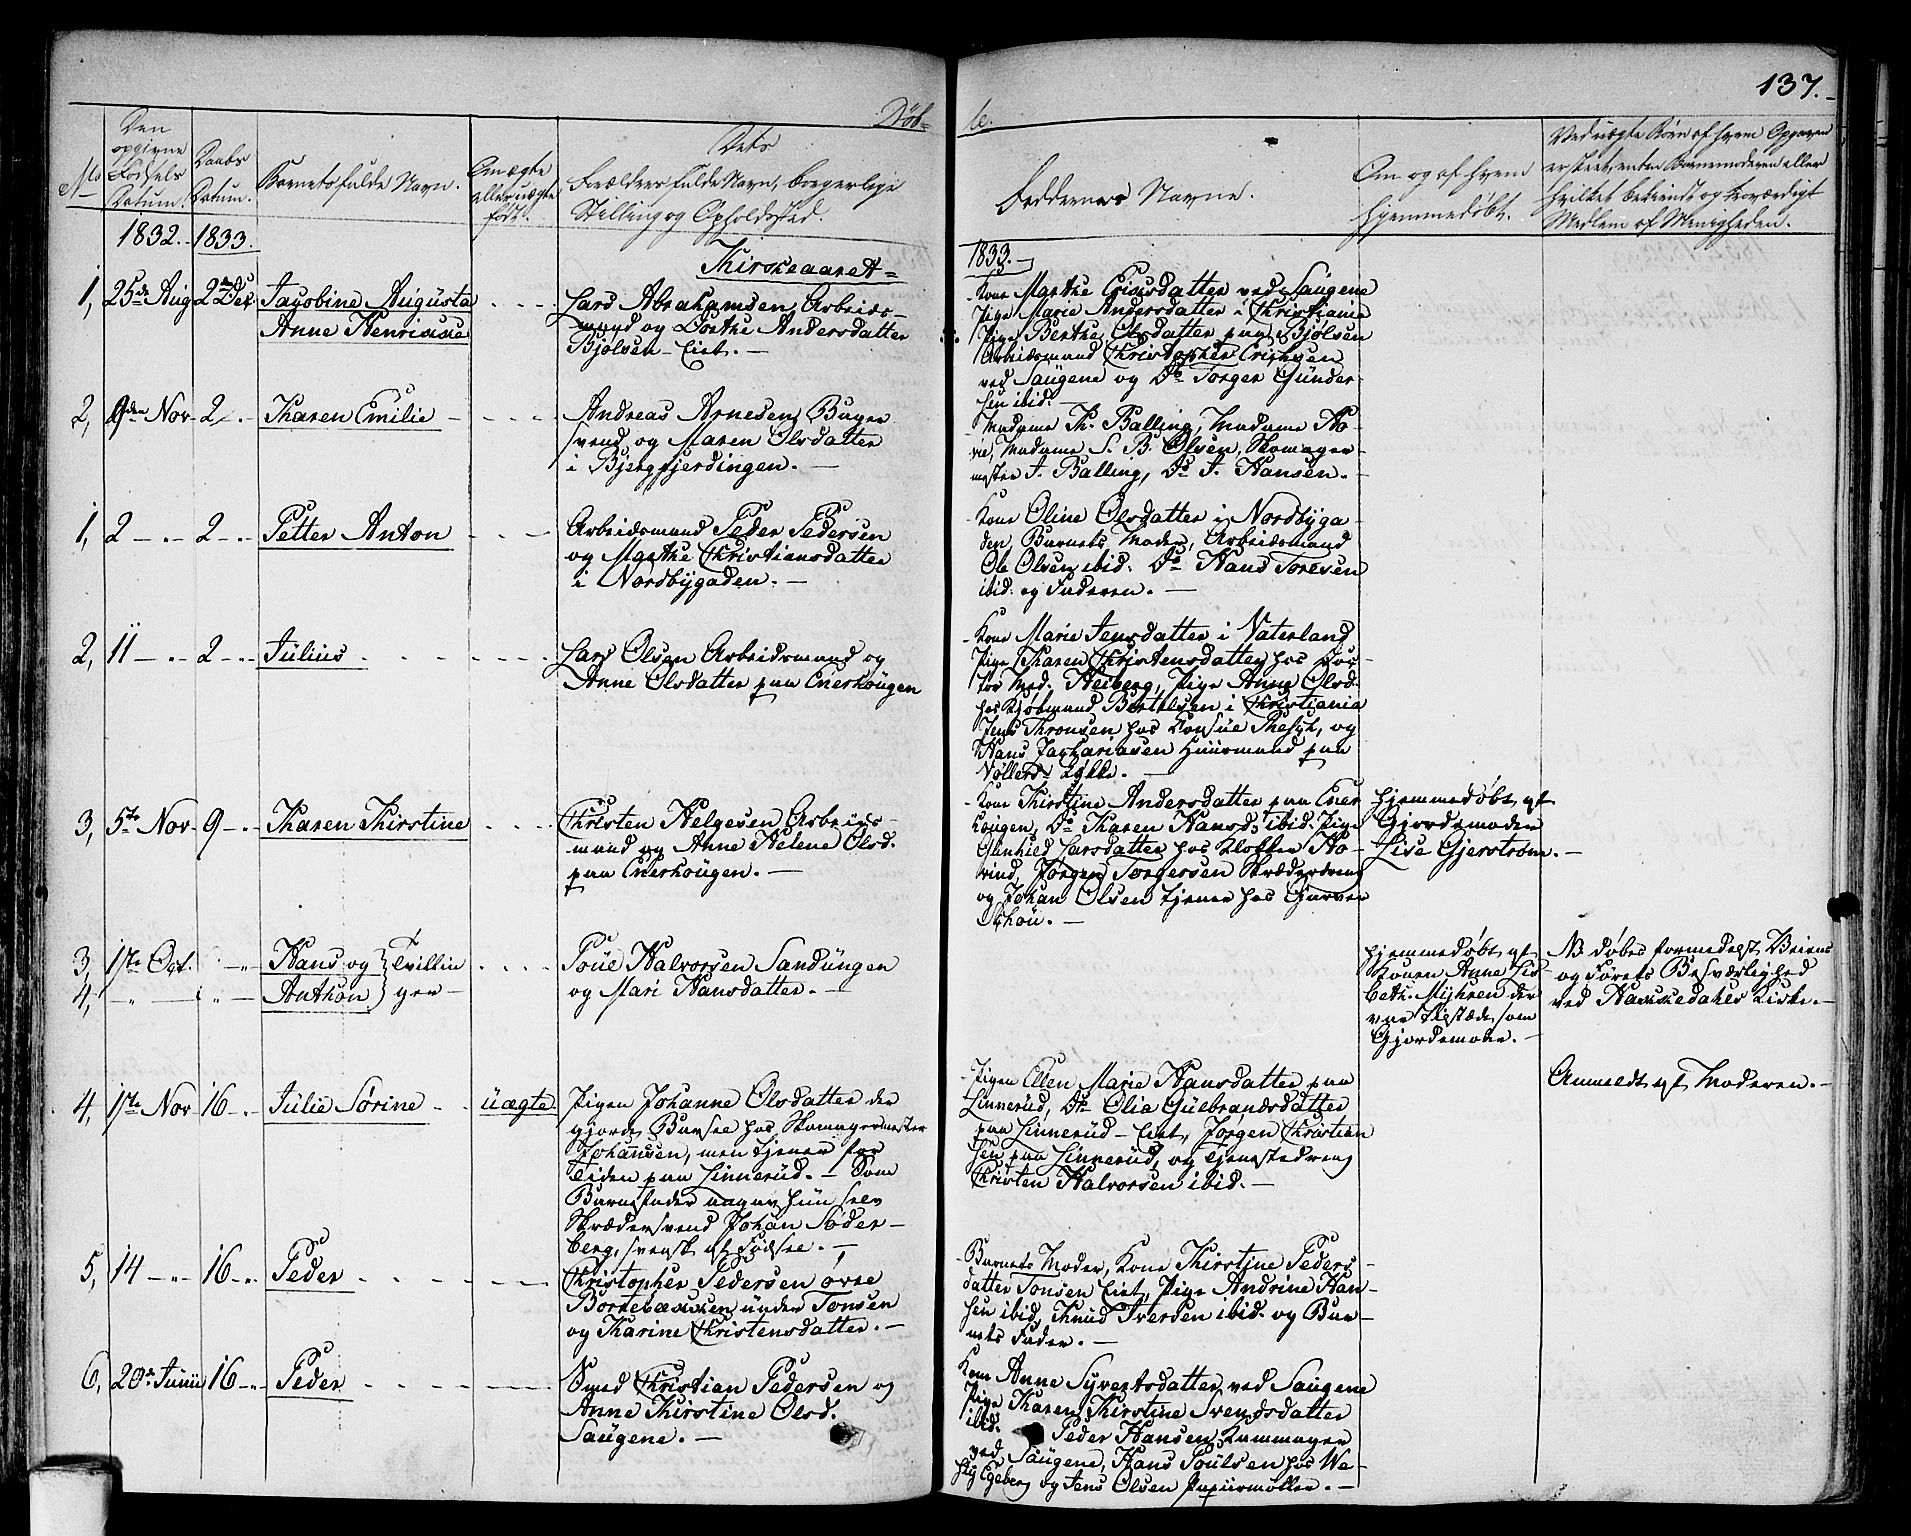 137.
Døb-
te.
No
Den
opgivne
Fødsels
Datum.
Daabs
Datum.
Barnets fulde Navn.
Om ægte
eller uægte
født.
Dets
Forældres fulde Navn, borgerlige
Stilling og Opholdssted.
Faddernes Navne.
Om og af hvem
hjemmedøbt.
Ved uægte Børn af hvem Opgaven
er skeet, enten Barnemoderen eller
hvilket bekiendt og troværdigt
Medlem af Menigheden.
1832. 1833.
Kirkeaaret
1833.
1, 25de Aug 2den Dec Jacobine Augusta
Anne Henrikke
Lars Abrahamsen Arbeids-
mand og Dorthe Andersdatter
Bjølsen-Eiet.
Kone Marthe Ericsdatter ved Saugene
Pige Marie Andersdatter i Christiania
Pige Berthe Olsdatter paa Bjølsen
Arbeidsmand Christopher Erichsen
ved Saugene og Do Torger Gunder-
sen ibid.
2, 9den Nov 2 Karen Emilie
Andreas Arnesen Bager
svend og Maren Olsdatter
i Bjergfjerdingen.
Madame Th. Balling, Madame Ho-
vie, Madame S. B. Olsen, Skomager-
mester J. Balling, Do J. Hansen.
1, 2 2 Petter Anton
Arbeidsmand Peder Pedersen
og Marthe Christiansdatter
i Nordbygaden.
Kone Oline Olsdatter i Nordbyga-
den Barnets Moder, Arbeidsmand
Ole Olsen ibid. Do Hans Toresen
ibid. og Faderen.
2, 11 2 Julius
Lars Olsen Arbeidsmand og
Anne Olsdatter paa Enerhougen
Kone Marie Jensdatter i Vaterland
Pige Karen Christensdatter hos
Heiberg, Pige Anne Olsd.
hos Kjøbmand Bertelsen i Christiania
Jens Thronsen hos Konsue, og
Hans Zachariasen Huusmand paa
Løkke.
3, 5te Nov 9 Karen Kirstine
Christen Helgesen Arbeids-
mand og Anne Helene Olsd.
paa Enerhougen.
Kone Kirstine Andersdatter paa Ener-
hougen, Do Karen Hansd. ibid. Pige
Gunhild Larsdatter hos Klokker Ho-
vind, Jørgen Torgersen Skrædderdreng
og Johan Olsen tjener hos Garver
Schou.
hjemmedøbt af
Gjordemoder
Lise Gjerstrøm.
3, 1te Oct. Hans og Tvillin
4, Anthon ger
Poul Halvorsen Sandungen
og Mari Hansdatter.
hjemmedøbt af
Konen Anne Lis
beth Myhren der
var tilstæde som
Gjordemoder.
NB døbes formedelst Veiens
og Førets Besværlighed
ved Kirke.
4, 1te Nov 16 Julie Sørine uægte.
Pigen Johanne Olsdatter der
gjorde Barsel hos Skomagermester
Johansen, men tjener for
Tiden paa Linnerud. Som
Barnefader angav hun selv
Skrædersvend Johan Søder-
berg, svensk af Fødsel.
Pigen Ellen Marie Hansdatter paa
Linnerud, Do Olia Gulbrandsdatter
paa Linnerud-Eiet, Jørgen Christian
sen paa Linnerud, og Tjenestedreng
Christen Halvorsen ibid.
Anmeldt af Moderen.
5, 14 16 Peder
Christopher Pedersen øvre
under Tonsen
og Karine Christensdatter.
Barnets Moder, Kone Kirstine Peders-
datter Tonsen Eiet, Pige Andrine Han-
sen ibid, Knud Iversen ibid. og Bar-
nets Fader.
6, 20de Junii 16 Peder
Smed Christian Pedersen og
Anne Kirstine Olsd.
Saugene.
Kone Anne Syvertsdatter ved Saugene
Pige Karen Kirstine Svendsdatter
ibid. Peder Hansen Kammager
ved Saugene, Hans Poulsen hos We-
sty Egeberg og Jens Olsen Papiirmøller.